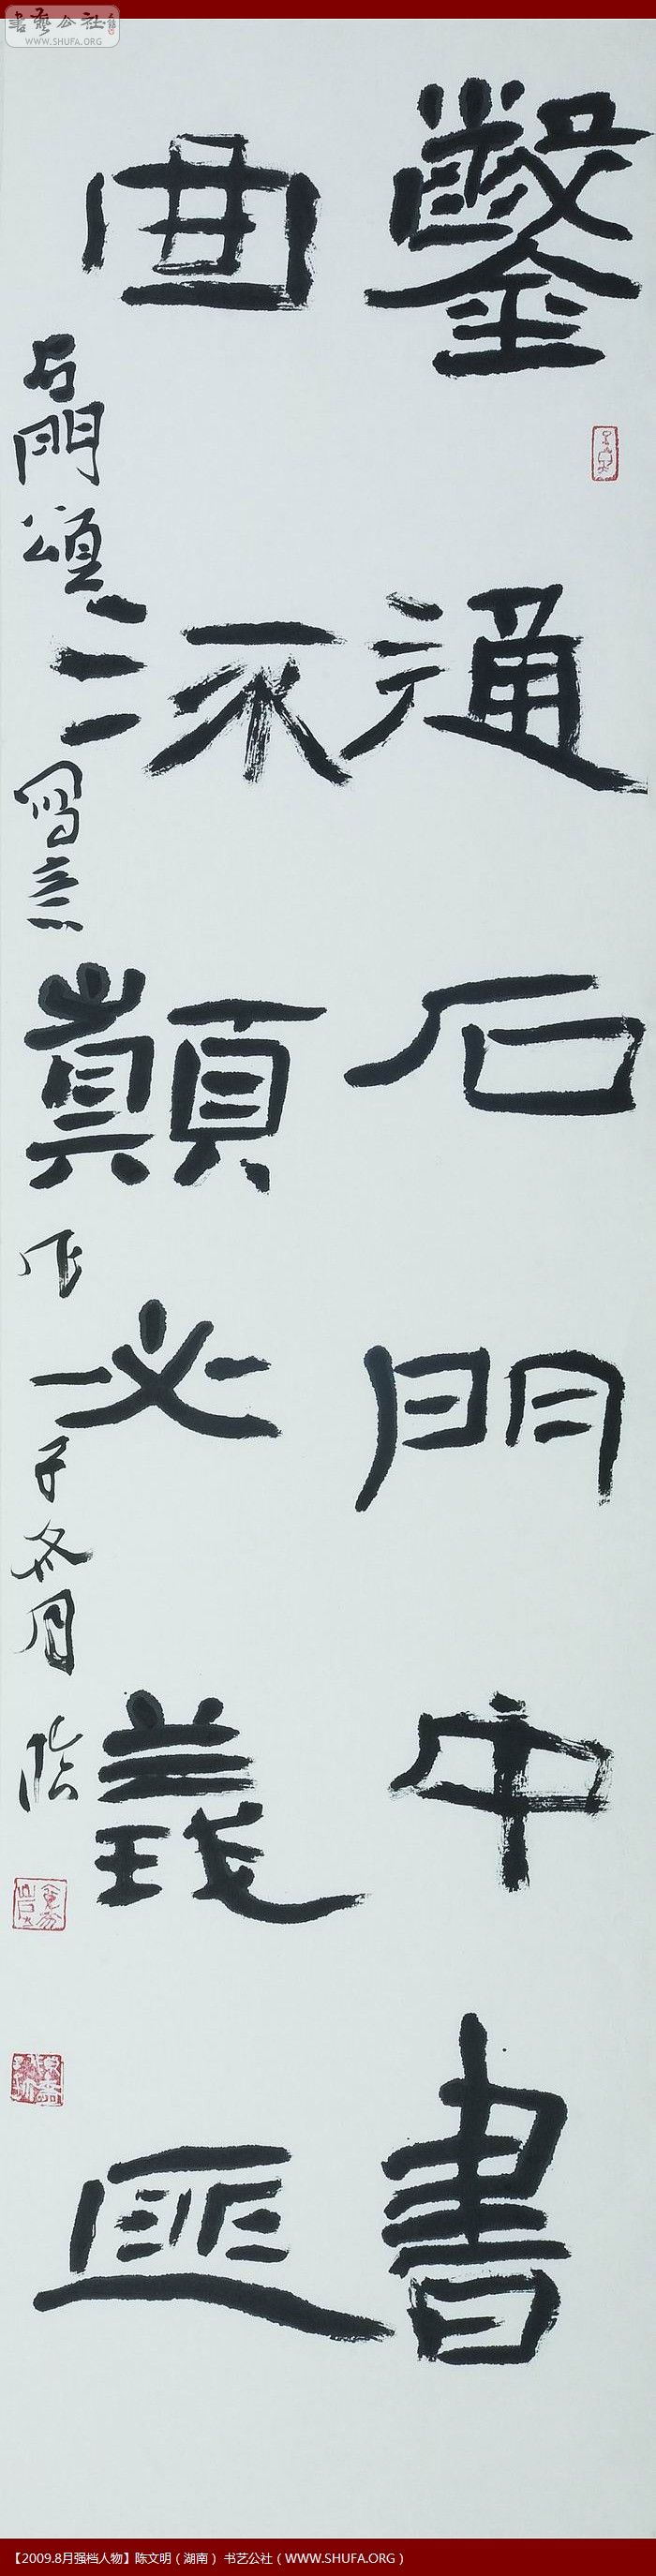 書藝公社
WWW.SHUFA.ORG
鑿通石門中書
曲顛必義匪
石門頌寫意作子冬月
【2009.8月强档人物】陈文明（湖南） 书艺公社（WWW.SHUFA.ORG）